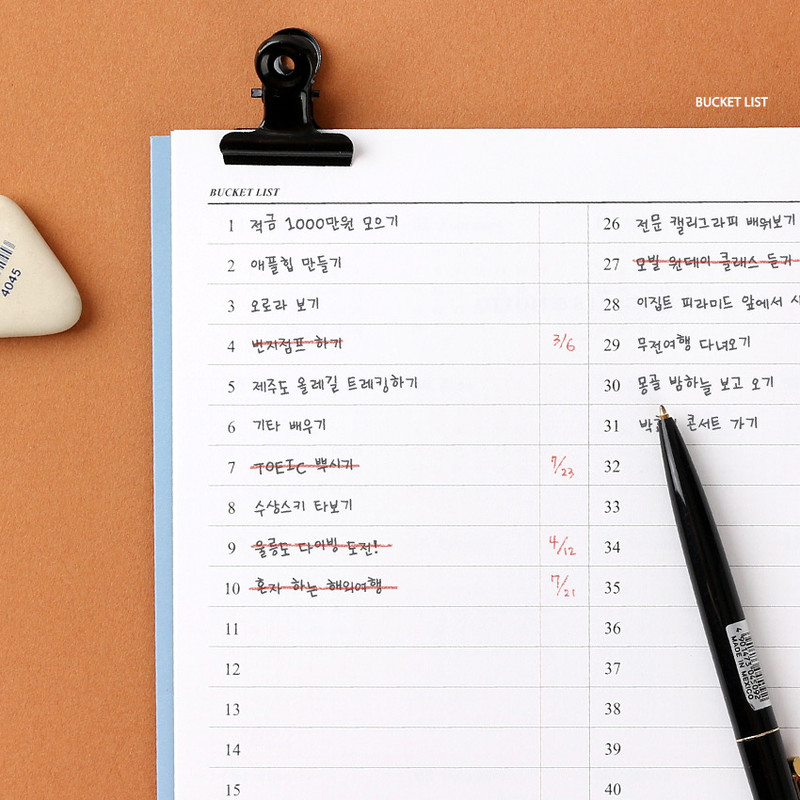 BUCKET LIST
BUCKET LIST
1 적금 1000만원 모으기
2 애플힙 만들기
3 오로라 보기
4 번지점프 하기 3/6
5 제주도 올레길 트레킹하기
6 기타 배우기
7 TOEIC 뿌시기 7/23
8 수상스키 타보기
9 울릉도 다이빙 도전! 4/12
10 혼자 하는 해외여행 7/21
11
12
13
14
15
26 전문 캘리그라피 배워보기
27 모빌 원데이 클래스 듣기
28 이집트 피라미드 앞에서
29 무전여행 다녀오기
30 몽골 밤하늘 보고 오기
31 콘서트 가기
32
33
34
35
36
37
38
39
40
4045
4 901473 045092
MADE IN MEXICO